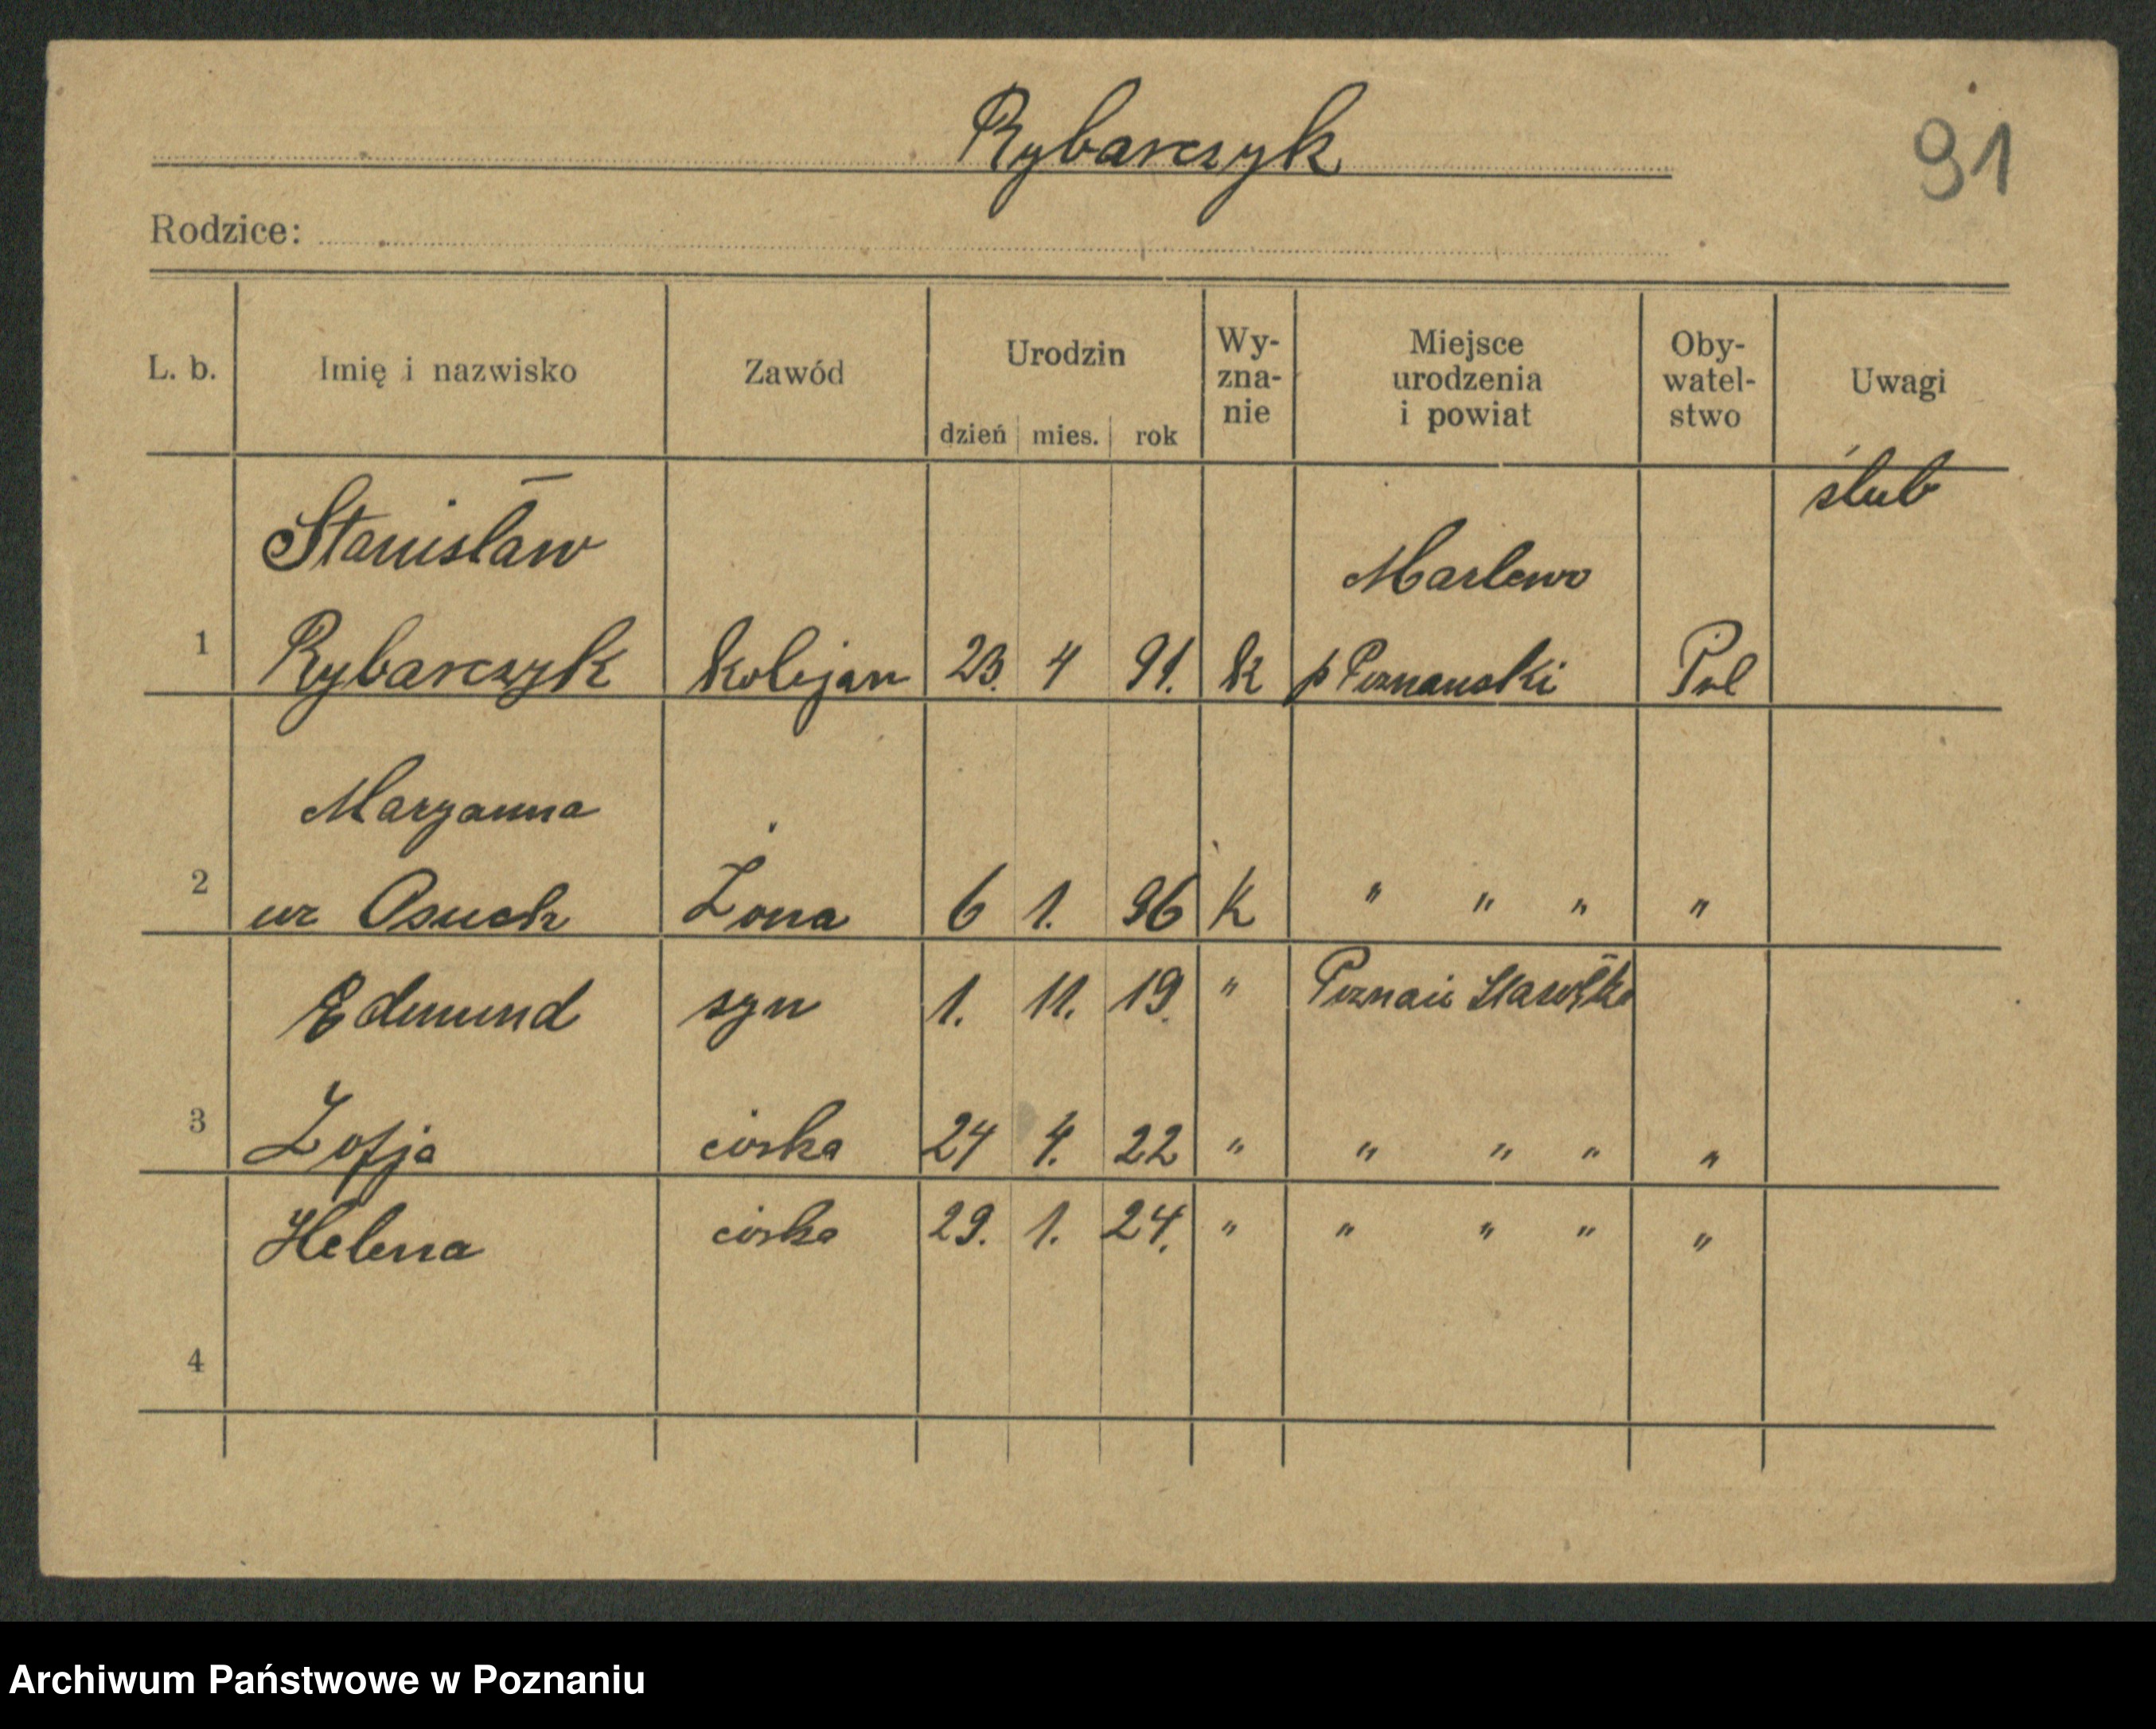 Rybarczyk
91
Rodzice:
L. b. Imię i nazwisko Zawód Urodzin dzień mies. rok Wy- zna- nie Miejsce urodzenia i powiat Oby- watel- stwo Uwagi
ślub
Stanisław Marlewo
1 Rybarczyk Kolejarz 23. 4 91. K p Poznański Pol
Maryanna
2 ur Osuch Żona 6 1. 96 K " " " "
Edmund syn 1. 11. 19. " Poznań
3 Zofja córka 24 4. 22 " " " " "
Helena córka 29. 1. 24. " " " " "
4
Archiwum Państwowe w Poznaniu